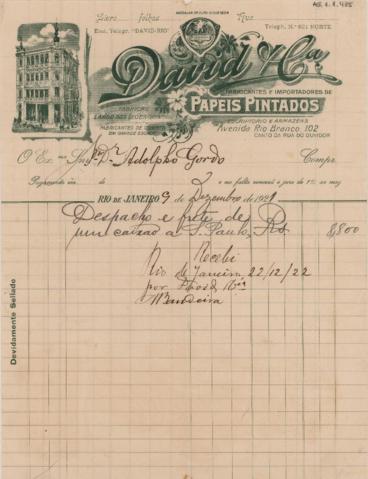 Livro folhas Rio
End. Telegr. "DAVID-RIO"
Teleph. N.º 821 NORTE
David & Ca
FABRICANTES E IMPORTADORES DE
PAPEIS PINTADOS
ESCRIPTORIO E ARMAZENS
Avenida Rio Branco, 102
CANTO DA RUA DO OUVIDOR
FABRICA
FABRICANTES DE
EM GRANDE ESCALA
O Ex.mo Snr. Dr. Adolpho Gordo Compra
Pagamento em de e na falta vencerá o juro de 1% ao mez
RIO DE JANEIRO 9 de Dezembro de 1921
Despacho e frete de
um caixão a S. Paulo, Rs. 8,800
Recebi
Rio de Janeiro 22/12/22
por David & Cia
Bandeira
Devidamente Sellado